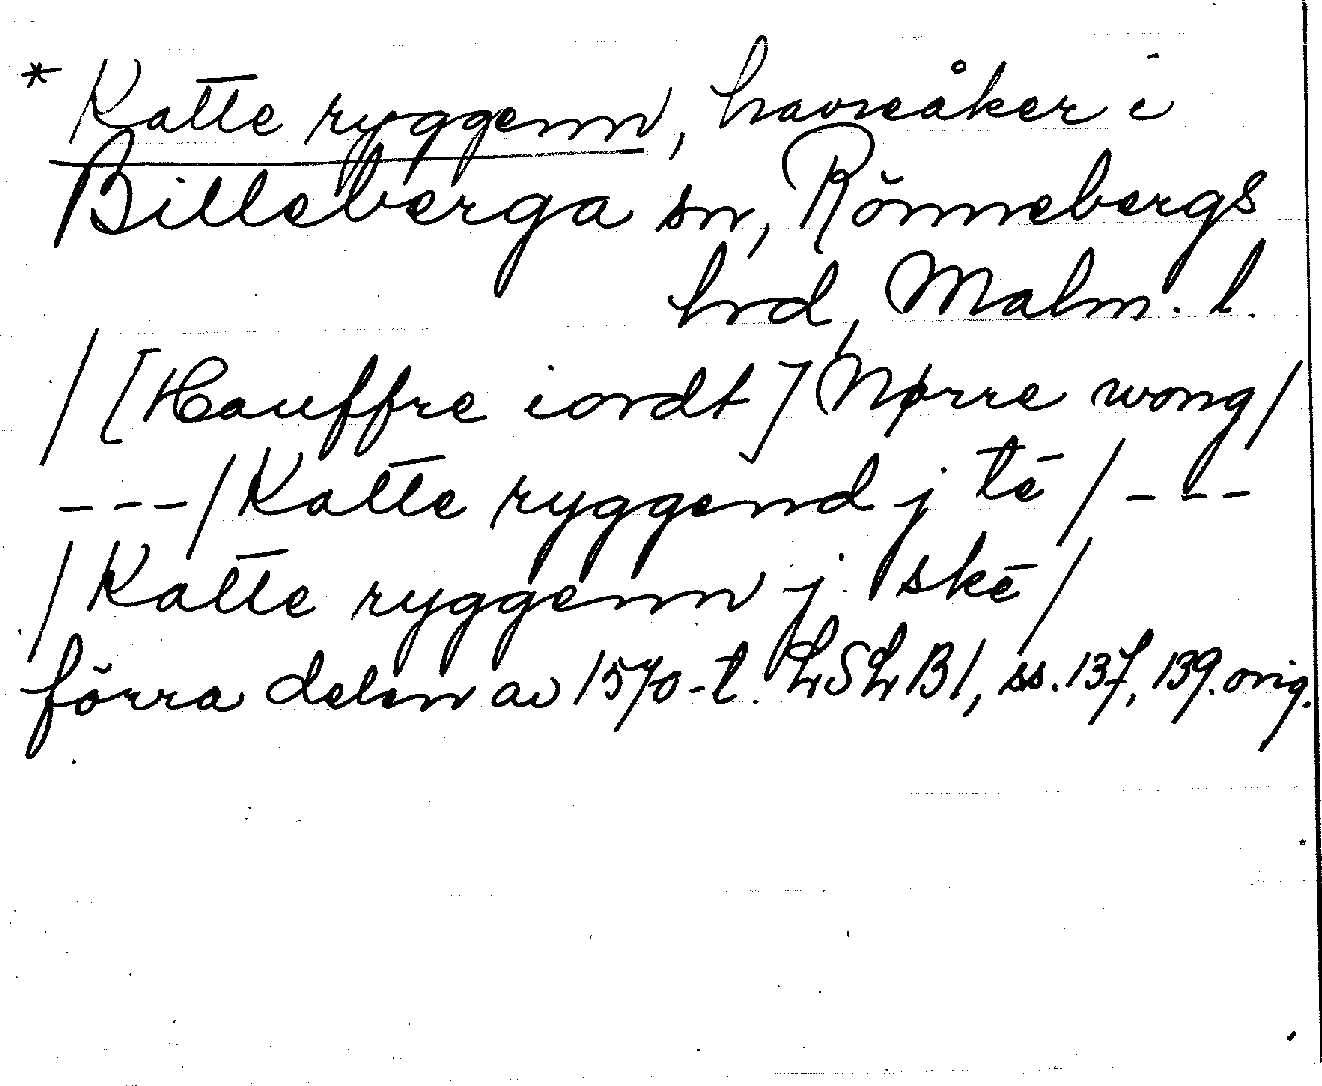 * Katte ryggenn, havreåker i
Billeberga sn, Rönnebergs
hrd, Malm. l.
/ [Hauffre iordt] Nørre wong /
---/ Katte ryggend j tē / ---
/ Katte ryggenn j skē /
förra delen av 1570-t. LSLB1, ss. 137, 139. orig.